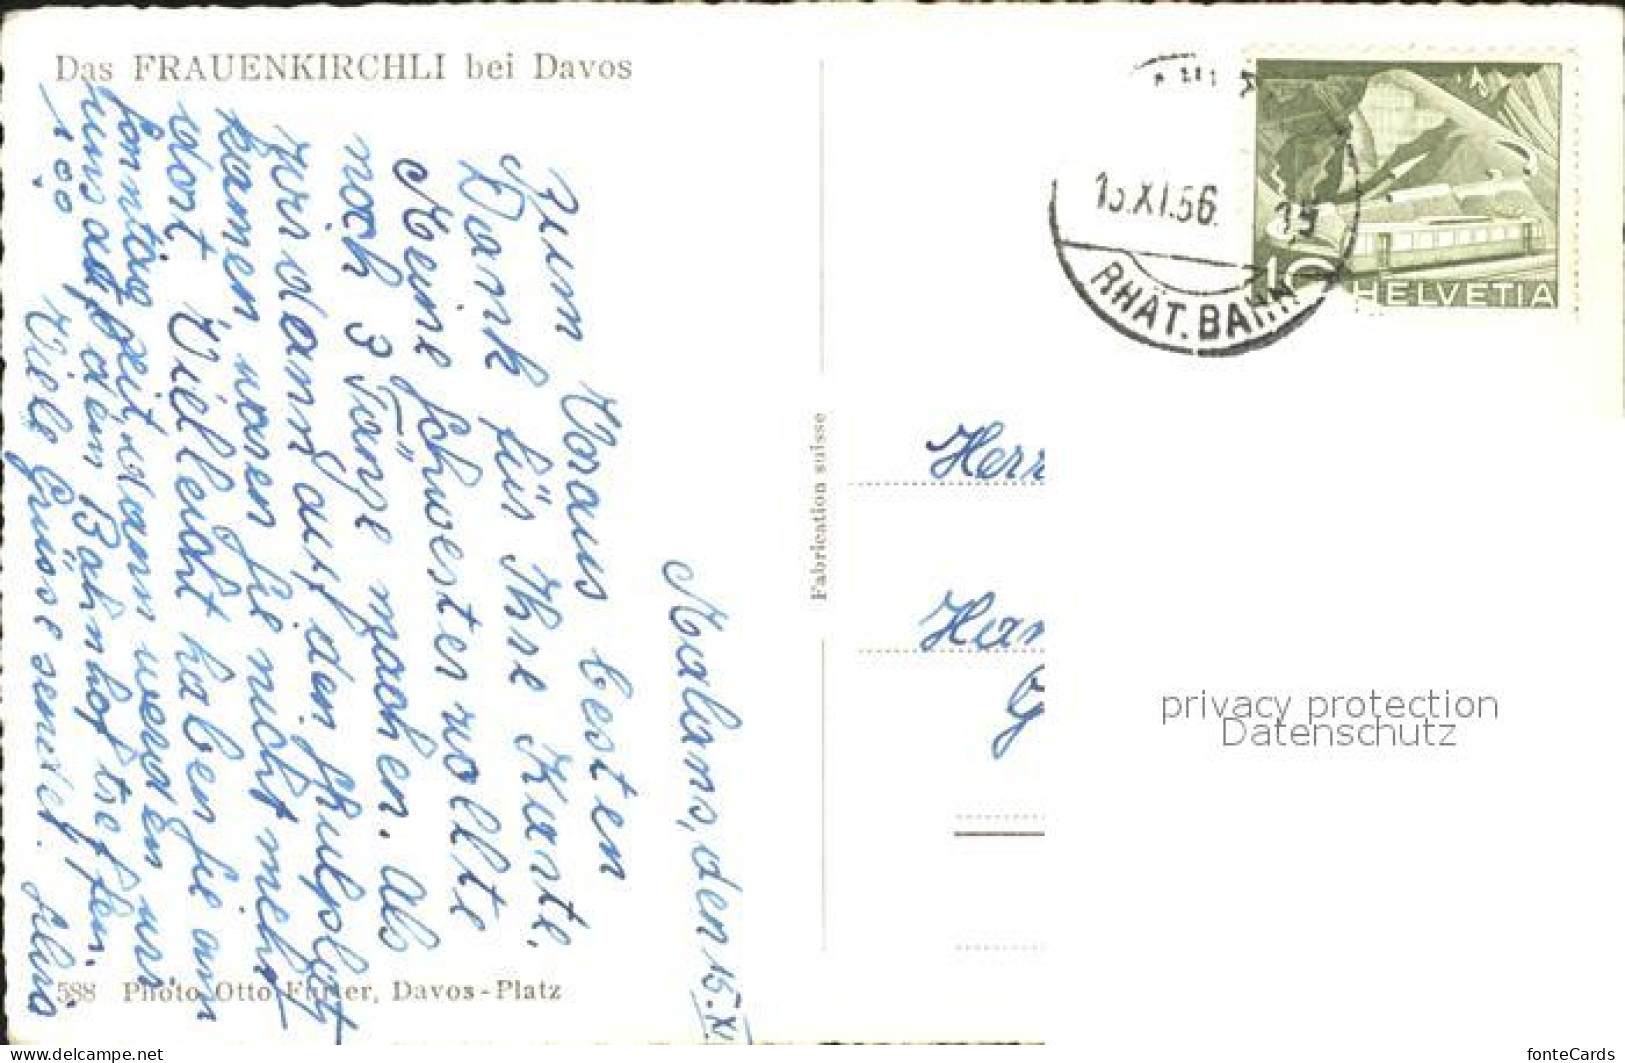 Das FRAUENKIRCHLI bei Davos
Malans, den 15. XI.
Zum Voraus besten
Dank für Ihre Karte.
Meine Schwester wollte
noch 3 Tänze machen. Als
wir dann auf den Schulplatz
kamen waren Sie nicht mehr
dort. Vielleicht haben Sie am
Sonntag Zeit, dann werden wir
uns auf dem Bahnhof treffen.
Viele Grüsse sendet.
588 Photo Otto Furter, Davos-Platz
Fabrication suisse
XI.56.
RHÄT. BAHN
10 HELVETIA
Herr
privacy protection
Datenschutz
https://www.delcampe.net
fonteCards